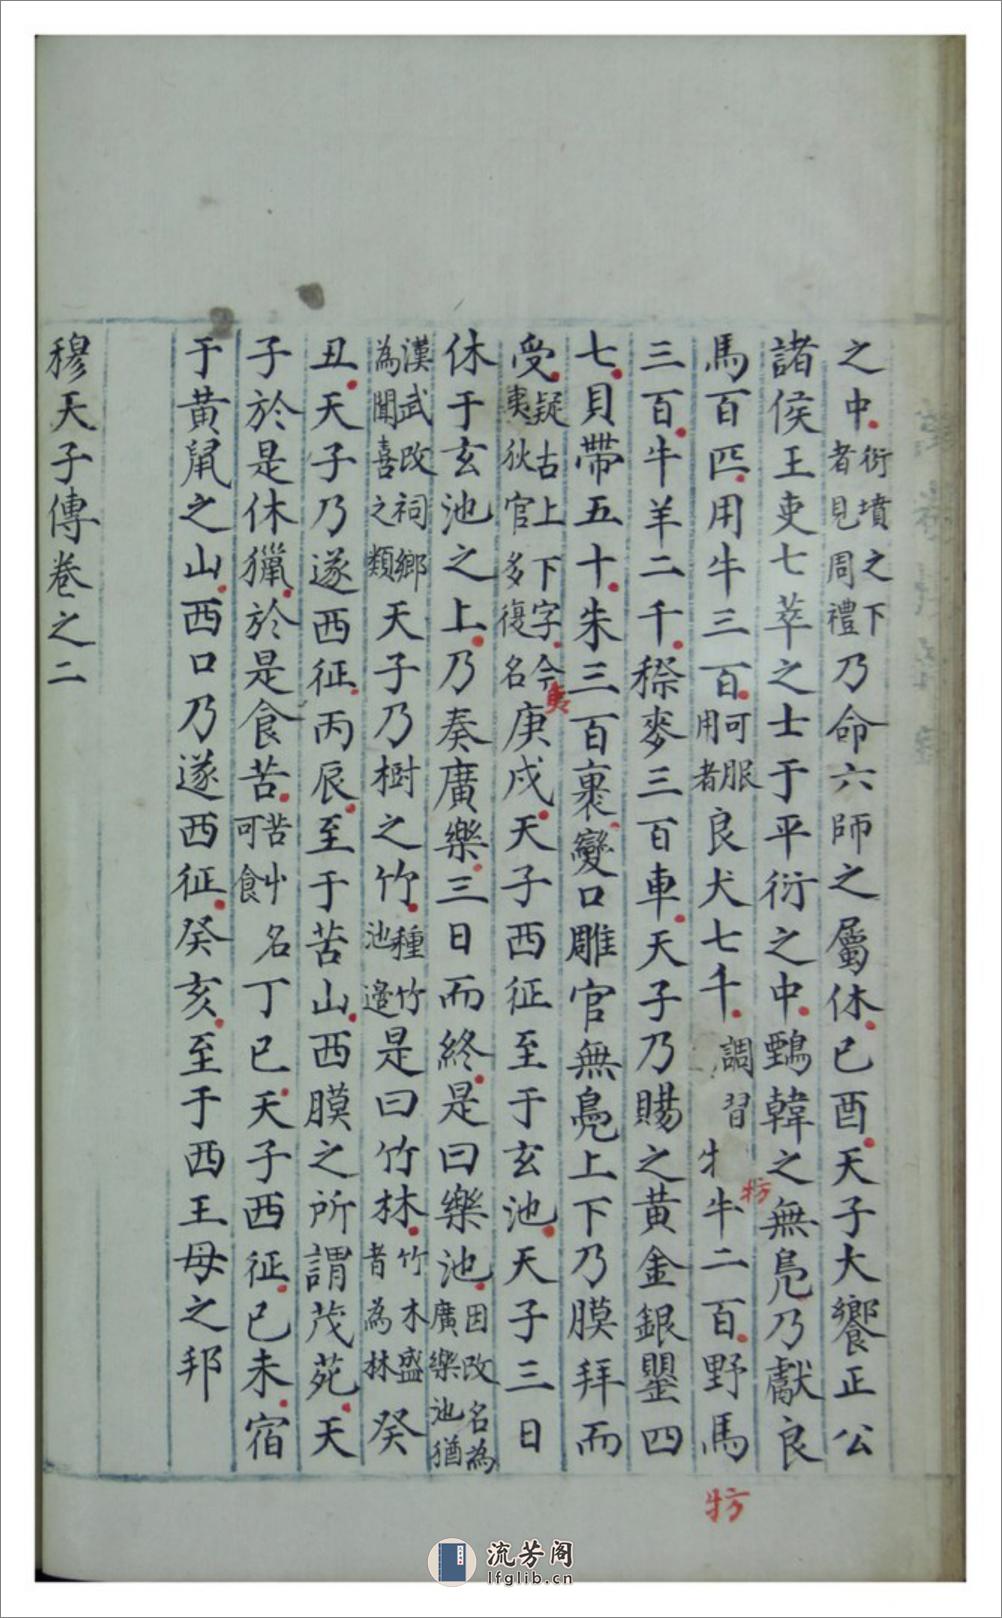 之中衍墳之下者見周禮乃命六師之屬休已酉天子大饗正公
諸侯王吏七萃之士于平衍之中鄄韓之無鳧乃獻良
馬百匹用牛三百可服用者良犬七千調習牜牛二百野馬
牥
三百牛羊二千穄麥三百車天子乃賜之黃金銀罌四
七貝帶五十朱三百裹變口雕官無鳧上下乃膜拜而
受疑古上下字今夷狄官多復名庚戌天子西征至于玄池天子三日
夷
休于玄池之上乃奏廣樂三日而終是曰樂池因改名為廣樂池猶
漢武改祠鄉為聞喜之類天子乃樹之竹種竹池邉是曰竹林竹木盛者為林癸
丑天子乃遂西征丙辰至于苦山西膜之所謂茂苑天
子於是休獵於是食苦苦艸名可食丁已天子西征已未宿
于黃鼠之山西口乃遂西征癸亥至于西王母之邦
穆天子傳卷之二
牥
流芳阁
lfglib.cn